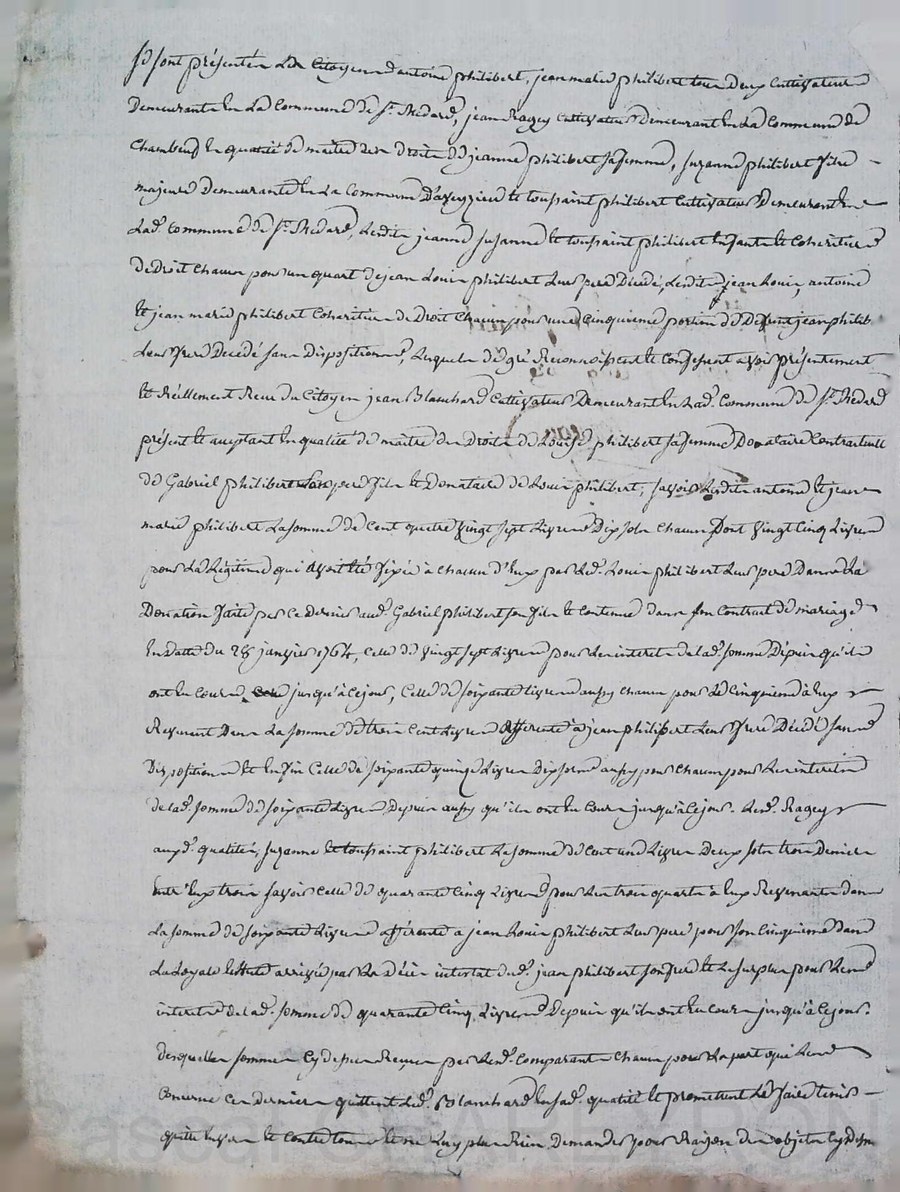 Se sont présentés Les Citoyens antoine philibert, jean marie philibert tous deux Cultivateurs
Demeurants En La Commune de St. Medard, jean Ragey Cultivateur Demeurant En La Commune de
Chambeuf En qualité de maitre des Droits de jeanne philibert sa femme, suzanne philibert fille
majeure Demeurante En La Commune D'aveyzieu Et toussaint philibert Cultivateur Demeurant En
Lad. Commune de St. Medard, Lesdits jeanne suzanne Et toussaint philibert Enfants Et Cohéritiers
de Droit chacun pour un quart de jean Louis philibert Leur pere Décédé, Lesdits jean Louis, antoine
Et jean marie philibert Cohéritiers de Droit chacun pour une Cinquieme portion de Défunt jean philib
Leur frere Décédé sans Dispositions, Lesquels de gré Reconnoissent Et Confessent avoir présentement
Et Réellement Recu du Citoyen jean Blanchard Cultivateur Demeurant En Lad. Commune de St. Medard
présent Et acceptant En qualité de maitre des Droits de Louise philibert sa femme Donataire Contractuelle
de Gabriel philibert son pere fils Et Donataire de Louis philibert, savoir Lesdits antoine Et jean
marie philibert La somme de Cent quatre vingt sept Livres Dix sols chacun Dont vingt Cinq Livres
pour La Légitime qui avoit été fixée à chacun d'Eux par Led. Louis philibert Leur pere Dans La
Donation faite par ce Dernier aud. Gabriel philibert son fils Et Contenue dans son Contrat de mariage
En Datte du 28 janvier 1764, Celle de vingt sept Livres pour Les interets de lad. somme Depuis qu'ils
ont Eu Cours jusqu'à Ce jour, Celle de soixante Livres aussy chacun pour Le Cinquieme à Eux
Revenant Dans La somme de trois Cent Livres afferente à jean philibert Leur frere Décédé sans
Dispositions Et Enfin Celle de soixante quinze Livres Dix sols aussy pour chacun pour Les interets
de lad. somme de soixante Livres Depuis aussy qu'ils ont Eu Cours jusqu'à Ce jour. Led. Ragey
auxd. qualités, suzanne Et toussaint philibert La somme de Cent une Livres Deux sols trois Deniers
Entr'Eux trois savoir Celle de quarante Cinq Livres pour Les trois quarts à Eux Revenants dans
La somme de soixante Livres afférente à jean Louis philibert Leur pere pour son Cinquieme Dans
La Loyale Echute arrivée par Le Décès intestat dud. jean philibert son frere Et Le surplus pour Les
interets de lad. somme de quarante Cinq Livres Depuis qu'ils ont Eu Cours jusqu'à Ce jour.
Desquelles sommes Cy dessus Recues par Lesd. Comparants chacun pour La part qui Les
Concerne Ces derniers quittent Led. Blanchard En sad. qualité Et promettent Le faire tenir
quitte Envers Et Contre tous Et ne Luy plus Rien Demander pour Raison des objets Cy dessus